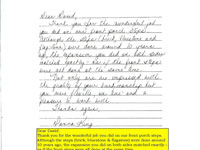 Dear David,
Thank you for the wonderful job
you did on our front porch steps.
Although the steps (brick, limestone and
flagstone) were done around 10 years
ago, the expansion you did on both sides
matched exactly - as if the front steps
were all done at the same time.
Not only are we impressed with
the quality of your workmanship but
you were friendly, on time and a
pleasure to work with.
Thanks again,
Dear David
Thank you for the wonderful job you did on our front porch steps.
Although the steps (brick, limestone & flagstone) were done around
10 years ago, the expansion you did on both sides matched exactly -